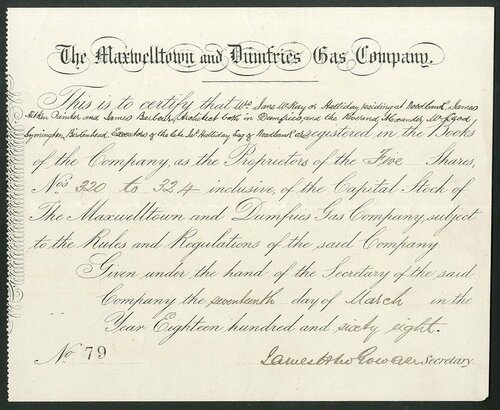 The Maxwelltown and Dumfries Gas Company.
This is to certify that Mrs Jane McKay or Halliday residing at Woodbank, James
Aitken Painter and James Barbour Architect both in Dumfries, and the Reverend Alexander
Symington, Birkenhead, Executors of the late Jas Halliday Esq of Woodbank are registered in the Books
of the Company, as the Proprietors of the Five Shares,
Nos 320 to 324 inclusive, of the Capital Stock of
The Maxwelltown and Dumfries Gas Company, subject
to the Rules and Regulations of the said Company
Given under the hand of the Secretary of the said
Company the seventeenth day of March in the
Year Eighteen hundred and sixty eight.
No 79
James McGowan Secretary.